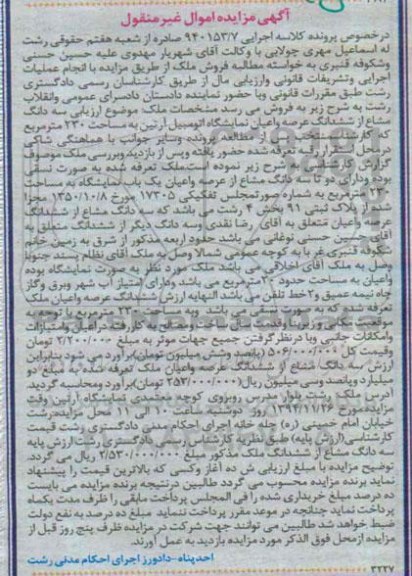 آگهی مزایده اموال غیرمنقول
درخصوص پرونده کلاسه اجرایی ۹۴۰۱۵۳/۷ صادره از شعبه هفتم حقوقی رشت
له اسماعیل مهری چولابی با وکالت آقای شهریار مهدوی علیه حسین حسنی
وشکوفه قنبری به خواسته مطالبه فروش ملک از طریق مزایده با انجام عملیات
اجرایی وتشریفات قانونی وارزیابی مال از طریق کارشناسان رسمی دادگستری
رشت طبق مقررات قانونی وبا حضور نماینده دادستان دادسرای عمومی وانقلاب
رشت به شرح زیر به فروش می رسد مشخصات ملک: موضوع ارزیابی سه دانگ
مشاع از ششدانگ عرصه واعیان نمایشگاه اتومبیل آرتین به مساحت ۲۳۰ مترمربع
که کارشناس منتخب پس از مطالعه پرونده وسایر جوانب با هماهنگی شاکی
درمحل استقرار رقبه تعرفه شده حضور یافته وپس از بازدید وبررسی ملک موصوف
گزارش کارشناسی به شرح زیر نموده است. ملک تعرفه شده به صورت نسقی
بوده ودارای دو تا سه دانگ مشاع از عرصه واعیان یک باب نمایشگاه به مساحت
۲۳۰ مترمربع به شماره صورتمجلس تفکیکی ۱۷۳۰۵ مورخ ۱۳۵۰/۱۰/۸ مجزا
شده از پلاک ثبتی ۹۱ بخش ۴ رشت می باشد که سه دانگ مشاع از ششدانگ
عرصه واعیان متعلق به آقای رضا نقدی وسه دانگ دیگر از ششدانگ متعلق به
آقای حسین حسنی نوغانی می باشد حدود اربعه مذکور از شرق به زمین خانم
شکوفه قنبری غربا به کوچه عمومی شمالا وصل به ملک آقای نظام پسند جنوبا
وصل به ملک آقای اخلاقی می باشد ملک مورد نظر به صورت نمایشگاه بوده
واعیان به مساحت حدود ۳۰مترمربع می باشد ودارای امتیاز آب شهر وبرق وگاز
چاه نیمه عمیق و۲خط تلفن می باشد النهایه ارزش ششدانگ عرصه واعیان ملک
تعرفه شده که به صورت نسقی می باشد وبه مساحت ۲۳۰ مترمربع با توجه به
موقعیت مکانی و زیربنا وقدمت سال ساخت ومصالح به کاررفته دراعیان وامتیازات
وامکانات جانبی وبا در نظر گرفتن جمیع جهات موثر به مبلغ ۲/۲۰۰/۰۰۰ تومان
وقیمت کل ۵۰۶/۰۰۰/۰۰۰ (پانصد وشش میلیون تومان)برآورد می شود بنابراین
ارزش سه دانگ مشاع از ششدانگ عرصه واعیان ملک تعرفه شده به مبلغ دو
میلیارد وپانصد وسی میلیون ریال(۲۵۳/۰۰۰/۰۰۰ تومان)برآورد ومحاسبه گردید.
آدرس ملک: رشت بلوار مدرس روبروی کوچه معتمدی نمایشگاه آرتین وقت
مزایده مورخ ۱۳۹۴/۱۱/۲۶ روز دوشنبه ساعت ۱۰ الی ۱۱ محل مزایده:رشت
خیابان امام خمینی (ره) جله خانه اجرای احکام مدنی دادگستری رشت قیمت
کارشناسی(ارزش پایه) طبق نظریه کارشناس رسمی دادگستری رشت ارزش پایه
سه دانگ مشاع از ششدانگ ملک مذکور مبلغ ۲/۵۳۰/۰۰۰/۰۰۰ ریال می گردد.
توضیح مزایده با مبلغ ارزیابی ش ده آغاز وکسی که بالاترین قیمت را پیشنهاد
نماید برنده مزایده محسوب می گردد طالبین درنتیجه برنده مزایده می بایست
ده درصد مبلغ خریداری شده را فی المجلس پرداخت مابقی را ظرف مدت یکماه
پرداخت نماید چنانچه در موعد مقرر پرداخت ننماید مبلغ ده درصد به نفع دولت
ضبط خواهد شد طالبین می توانند جهت شرکت در مزایده ظرف پنج روز قبل از
مزایده ازمحل فوق الذکر مورد مزایده بازدید به عمل آورند.
احدپناه-دادورز اجرای احکام مدنی رشت
۳۲۲۷